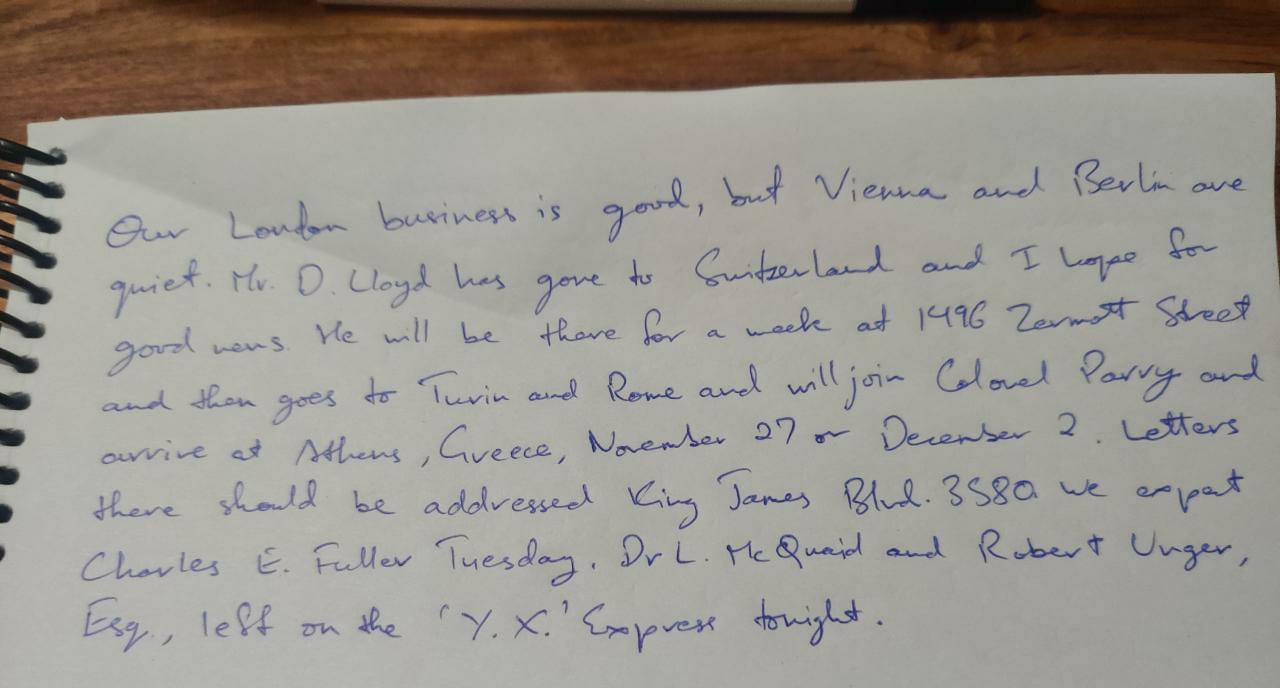 Our London business is good, but Vienna and Berlin are
quiet. Mr. D. Lloyd has gone to Switzerland and I hope for
good news. He will be there for a week at 1496 Zermott Street
and then goes to Turin and Rome and will join Colonel Parry and
arrive at Athens, Greece, November 27 or December 2. Letters
there should be addressed King James Blvd. 3580. We expect
Charles E. Fuller Tuesday. Dr L. McQuaid and Robert Unger,
Esq., left on the 'Y.X.' Express tonight.